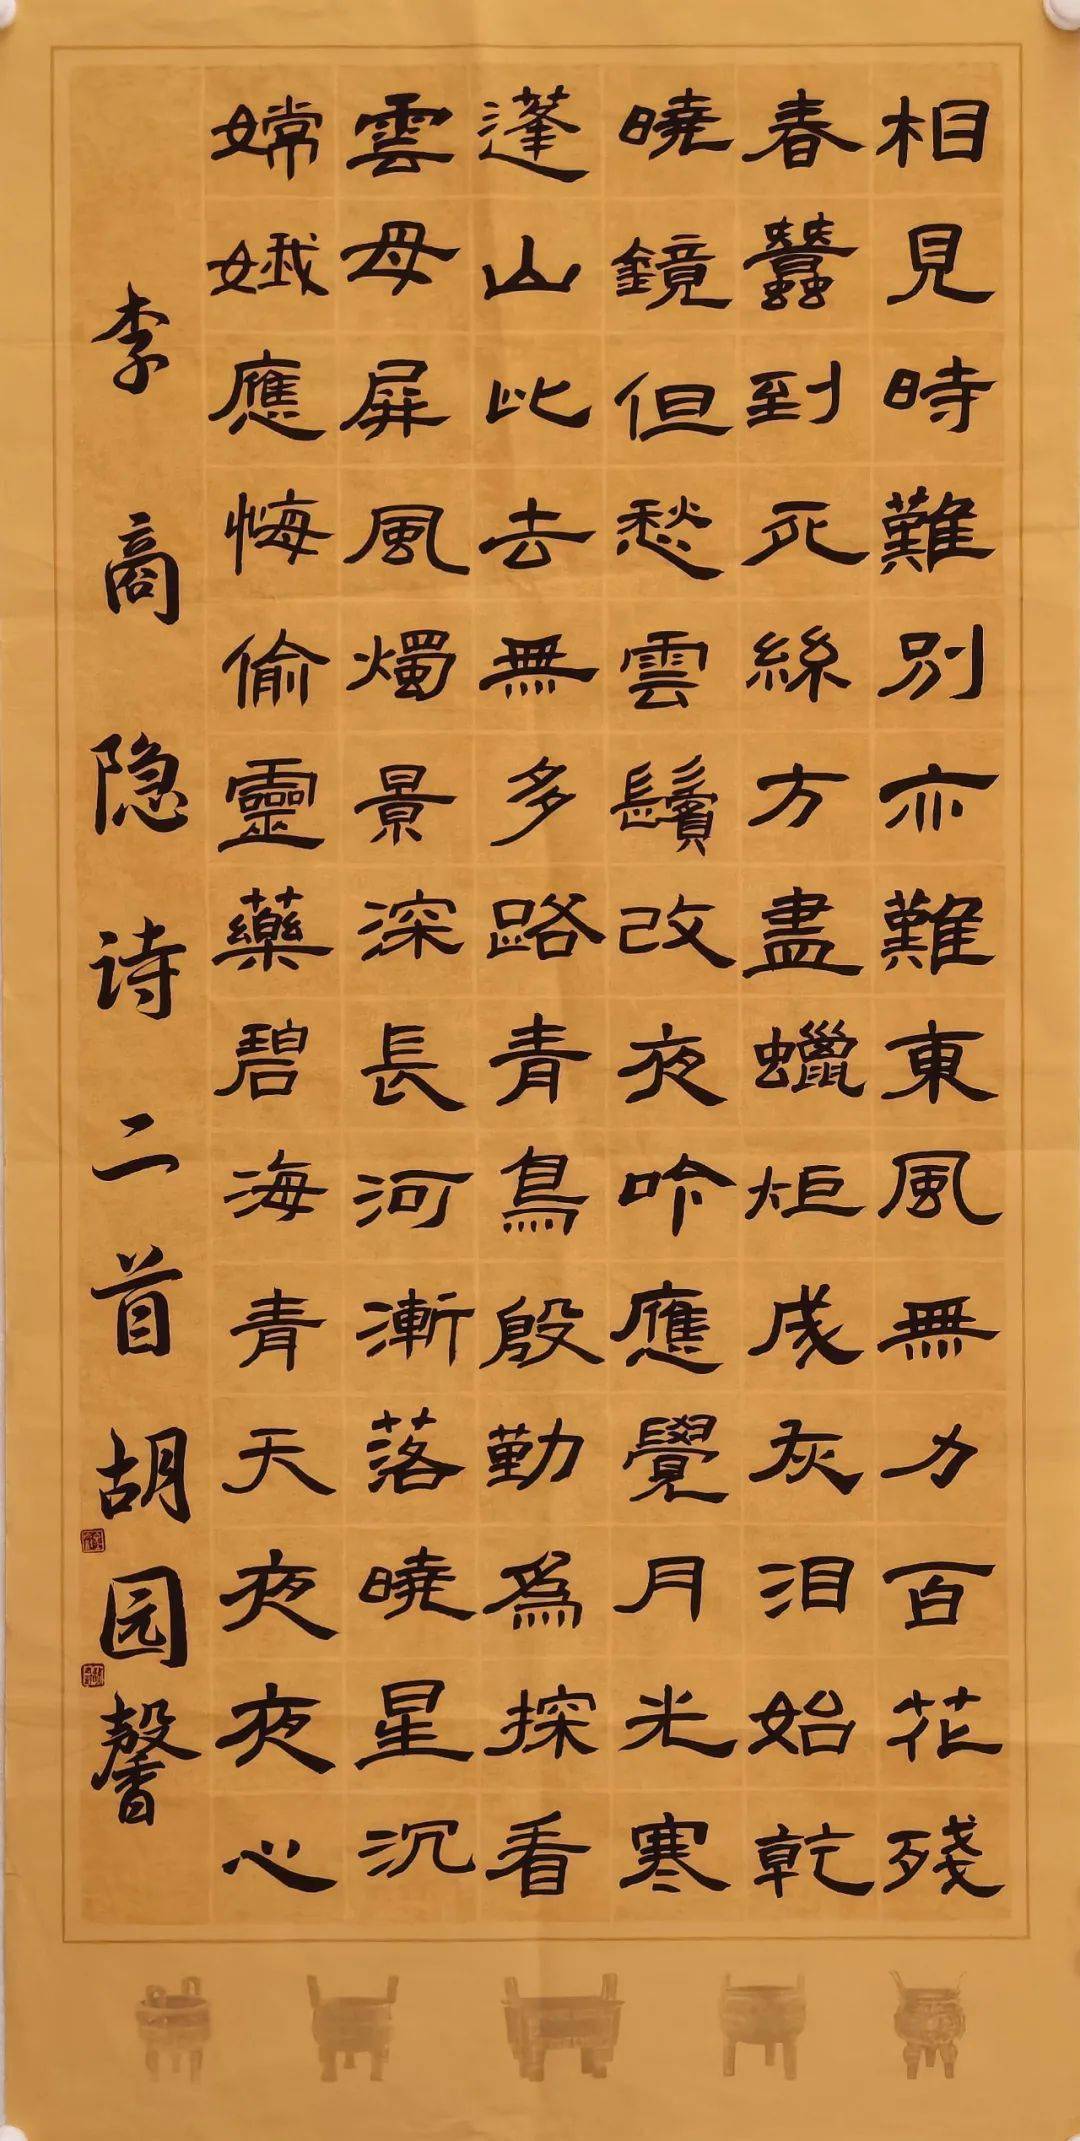 相見時難別亦難東風無力百花殘
春蠶到死絲方盡蠟炬成灰泪始乾
曉鏡但愁雲鬢改夜吟應覺月光寒
蓬山此去無多路青鳥殷勤為探看
雲母屏風燭景深長河漸落曉星沉
嫦娥應悔偷靈藥碧海青天夜夜心
李商隐诗二首胡园馨